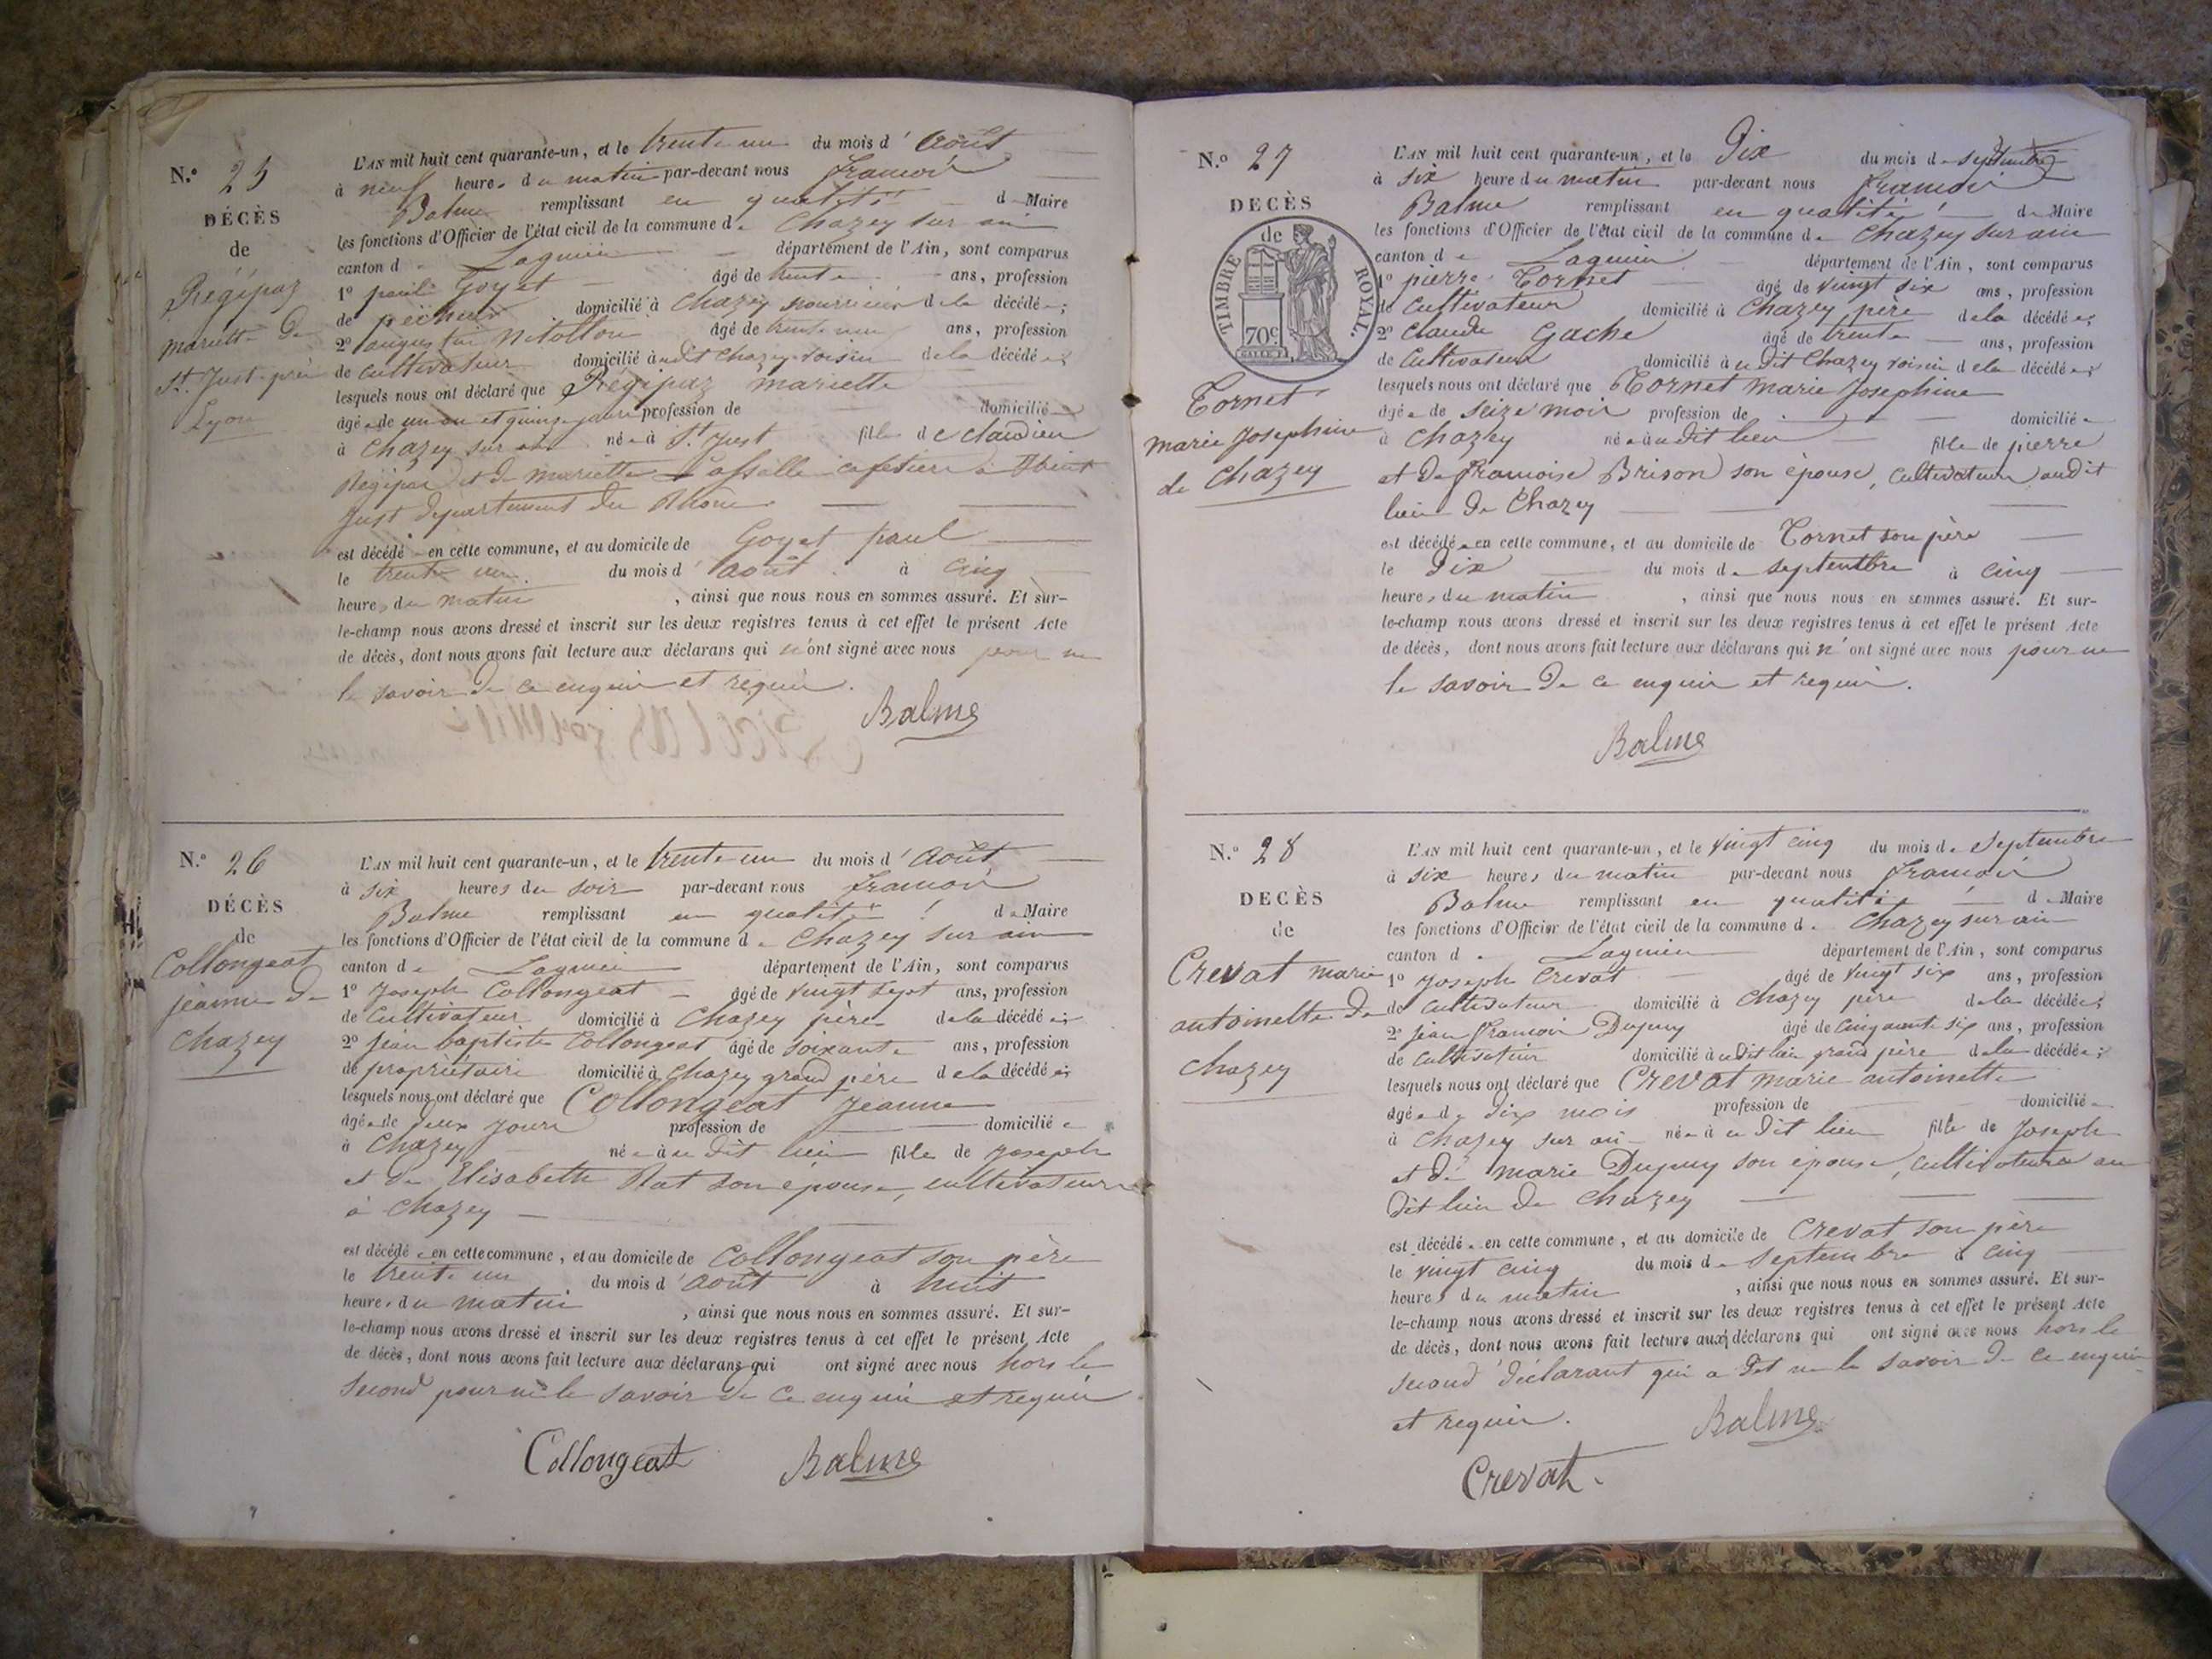 N.o 25
DÉCÈS
de
Régipaz
mariette De
St. Just près
Lyon
L'AN mil huit cent quarante-un, et le trente un du mois d'Août
à neuf heures du matin par-devant nous françois
Balme remplissant en qualité d Maire
les fonctions d'Officier de l'état civil de la commune de Chazey sur ain
canton de Lagnieu département de l'Ain, sont comparus
1o paul Goyet âgé de trente ans, profession
de pêcheur domicilié à Chazey nourricier de la décédée;
2o augustin âgé de trente neuf ans, profession
de cultivateur domicilié au dit Chazey voisin de la décédée;
lesquels nous ont déclaré que Régipaz mariette
âgée de un an et quinze jours profession de domiciliée
à Chazey sur ain née à St. Just fille de claudien
Régipaz et de mariette Lassalle cafetiers à Saint
Just département du Rhône
est décédée en cette commune, et au domicile de Goyet paul
le trente un du mois d'août à cinq
heures du matin, ainsi que nous nous en sommes assuré. Et sur-
le-champ nous avons dressé et inscrit sur les deux registres tenus à cet effet le présent Acte
de décès, dont nous avons fait lecture aux déclarans qui n'ont signé avec nous pour ne
le savoir de ce enquis et requis.
Balme
N.o 26
DÉCÈS
de
Collongeat
jeanne de
Chazey
L'AN mil huit cent quarante-un, et le trente un du mois d'Août
à six heures du soir par-devant nous françois
Balme remplissant en qualité d Maire
les fonctions d'Officier de l'état civil de la commune de Chazey sur ain
canton de Lagnieu département de l'Ain, sont comparus
1o Joseph Collongeat âgé de vingt sept ans, profession
de Cultivateur domicilié à Chazey père de la décédée;
2o Jean baptiste Collongeat âgé de soixante ans, profession
de propriétaire domicilié à Chazey grand père de la décédée;
lesquels nous ont déclaré que Collongeat Jeanne
âgée de deux jours profession de domiciliée
à Chazey née au dit lieu fille de Joseph
et de Elisabeth Rat son épouse, cultivateurs
à Chazey
est décédée en cette commune, et au domicile de Collongeat son père
le trente un du mois d'août à huit
heures du matin, ainsi que nous nous en sommes assuré. Et sur-
le-champ nous avons dressé et inscrit sur les deux registres tenus à cet effet le présent Acte
de décès, dont nous avons fait lecture aux déclarans qui ont signé avec nous hors le
second pour ne le savoir de ce enquis et requis
Collongeat Balme
N.o 27
DECÈS
de
TIMBRE ROYAL.
70c.
Tornet
marie Josephine
de Chazey
L'AN mil huit cent quarante-un, et le Dix du mois de septembre
à six heure du matin par-devant nous françois
Balme remplissant en qualité de Maire
les fonctions d'Officier de l'état civil de la commune de Chazey sur ain
canton de Lagnieu département de l'Ain, sont comparus
1o pierre Tornet âgé de vingt six ans, profession
de Cultivateur domicilié à Chazey père de la décédée;
2o Claude Gache âgé de trente ans, profession
de Cultivateur domicilié au dit Chazey voisin de la décédée;
lesquels nous ont déclaré que Tornet Marie Josephine
âgée de seize mois profession de domiciliée
à Chazey née au dit lieu fille de pierre
et de françoise Brison son épouse, Cultivateurs audit
lieu de Chazey
est décédée en cette commune, et au domicile de Tornet son père
le Dix du mois de septembre à cinq
heures du matin, ainsi que nous nous en sommes assuré. Et sur-
le-champ nous avons dressé et inscrit sur les deux registres tenus à cet effet le présent Acte
de décès, dont nous avons fait lecture aux déclarans qui n'ont signé avec nous pour ne
le savoir de ce enquis et requis.
Balme
N.o 28
DECÈS
de
Crevat marie
antoinette de
Chazey
L'AN mil huit cent quarante-un, et le vingt cinq du mois de Septembre
à six heures du matin par-devant nous françois
Balme remplissant en qualité d Maire
les fonctions d'Officier de l'état civil de la commune de Chazey sur ain
canton de Lagnieu département de l'Ain, sont comparus
1o Joseph Crevat âgé de vingt six ans, profession
de cultivateur domicilié à Chazey père de la décédée;
2o jean françois Dupuy âgé de cinquante six ans, profession
de cultivateur domicilié au dit lieu grand père de la décédée;
lesquels nous ont déclaré que Crevat marie antoinette
âgée de dix mois profession de domiciliée
à Chazey sur ain née au dit lieu fille de Joseph
et de marie Dupuy son épouse, cultivateurs au
dit lieu de Chazey
est décédée en cette commune, et au domicile de Crevat son père
le vingt cinq du mois de Septembre à cinq
heures du matin, ainsi que nous nous en sommes assuré. Et sur-
le-champ nous avons dressé et inscrit sur les deux registres tenus à cet effet le présent Acte
de décès, dont nous avons fait lecture aux déclarans qui ont signé avec nous hors le
second déclarant qui a dit ne le savoir de ce enquis
et requis. Balme
Crevat